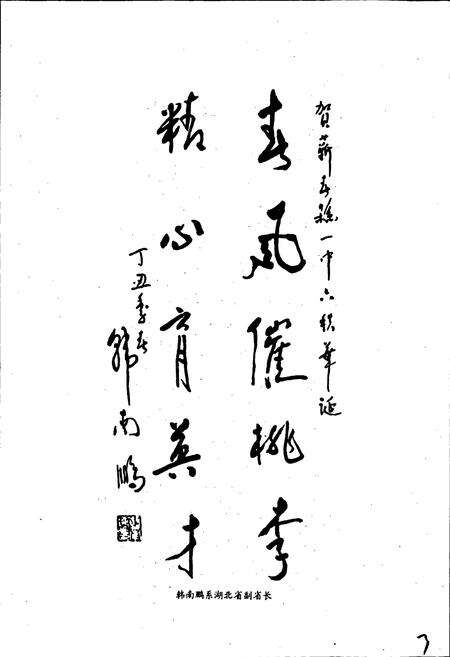 贺蕲春县一中六秩华诞
春风催桃李
精心育英才
丁丑季春
韩南鹏
韩南鹏系湖北省副省长
7